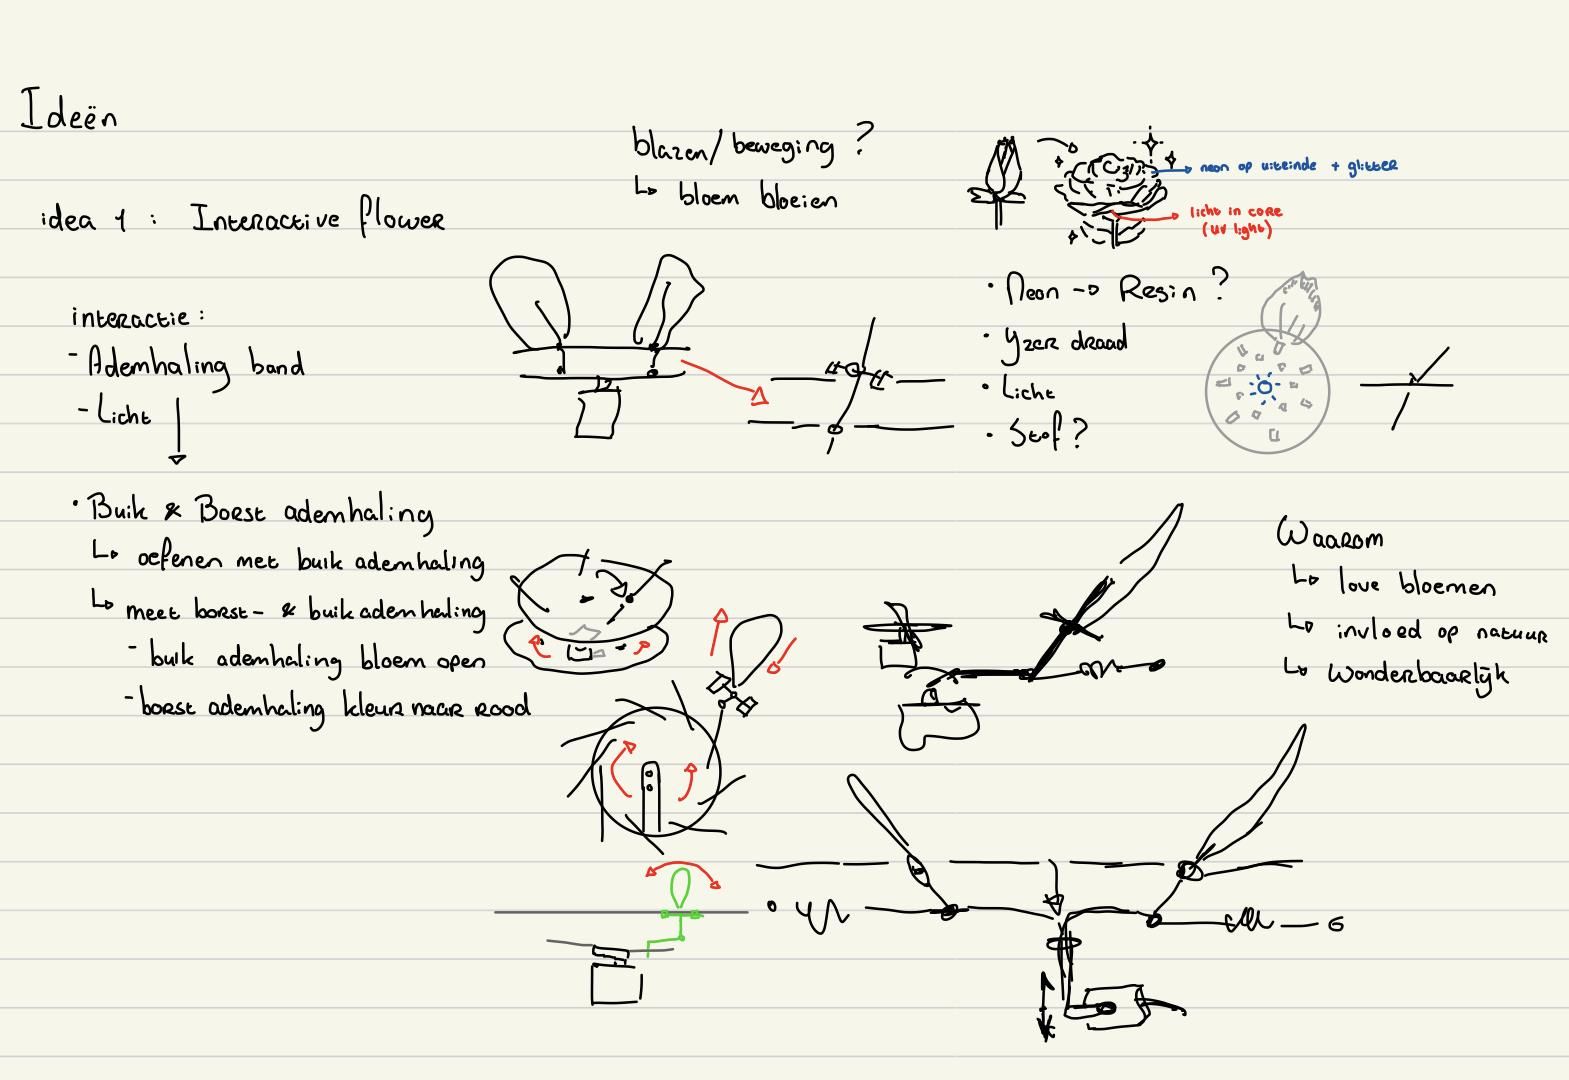 Ideën
idea 1 : Interactive flower
interactie :
- Ademhaling band
- Licht
• Buik & Borst ademhaling
↳ oefenen met buik ademhaling
↳ meet borst- & buik ademhaling
- buik ademhaling bloem open
- borst ademhaling kleur naar rood
blazen/beweging ?
↳ bloem bloeien
neon op uiteinde + glitter
licht in core
(uv light)
• Neon → Resin ?
• Yzer draad
• Licht
• Stof ?
Waarom
↳ love bloemen
↳ invloed op natuur
↳ Wonderbaarlijk